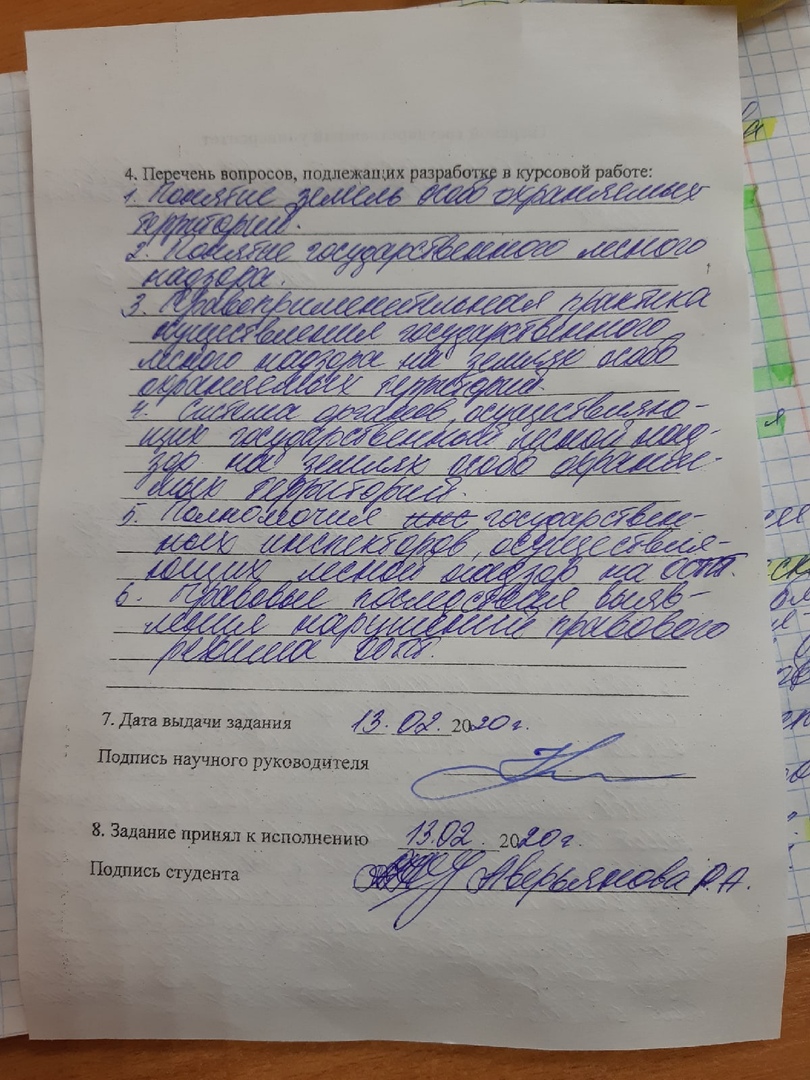 4. Перечень вопросов, подлежащих разработке в курсовой работе:
1. Понятие земель особо охраняемых
территорий.
2. Понятие государственного лесного
надзора.
3. Правоприменительная практика
осуществления государственного
лесного надзора на землях особо
охраняемых территорий.
4. Система органов, осуществляю-
щих государственный лесной над-
зор на землях особо охраняе-
мых территорий.
5. Полномочия государствен-
ных инспекторов, осуществля-
ющих лесной надзор на ООПТ.
6. Правовые последствия выяв-
ления нарушений правового
режима ООПТ.
7. Дата выдачи задания 13.02.2020г.
Подпись научного руководителя
8. Задание принял к исполнению 13.02.2020г.
Подпись студента Аверьянова Р.А.